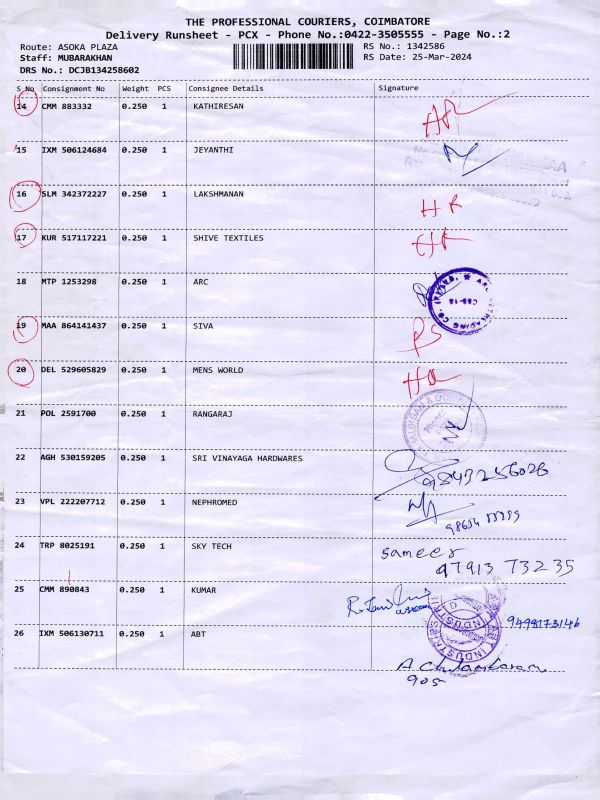 THE PROFESSIONAL COURIERS, COIMBATORE
Delivery Runsheet - PCX - Phone No.:0422-3505555 - Page No.:2
Route: ASOKA PLAZA RS No.: 1342586
Staff: MUBARAKHAN RS Date: 25-Mar-2024
DRS No.: DCJB134258602
S No Consignment No Weight PCS Consignee Details Signature
14 CMM 883332 0.250 1 KATHIRESAN
15 IXM 506124684 0.250 1 JEYANTHI
16 SLM 342372227 0.250 1 LAKSHMANAN
17 KUR 517117221 0.250 1 SHIVE TEXTILES
18 MTP 1253298 0.250 1 ARC
19 MAA 864141437 0.250 1 SIVA
20 DEL 529605829 0.250 1 MENS WORLD
21 POL 2591700 0.250 1 RANGARAJ
22 AGH 530159205 0.250 1 SRI VINAYAGA HARDWARES
23 VPL 222207712 0.250 1 NEPHROMED
24 TRP 8025191 0.250 1 SKY TECH sameer
97913 73235
25 CMM 890843 0.250 1 KUMAR
26 IXM 506130711 0.250 1 ABT
905